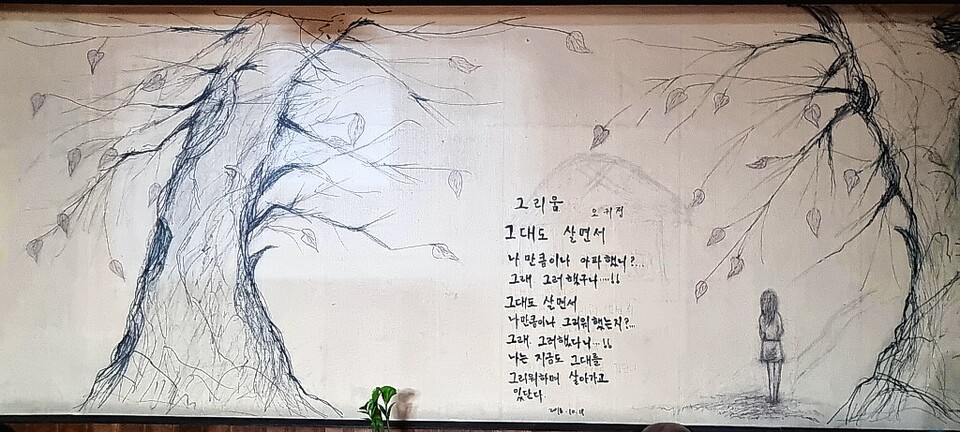 그리움
오귀정
그대도 살면서
나만큼이나 아파했니?...
그래 그러했구나...!!
그대도 살면서
나만큼이나 그리워했는지?...
그래. 그러했다니...!!
나는 지금도 그대를
그리워하며 살아가고
있단다.